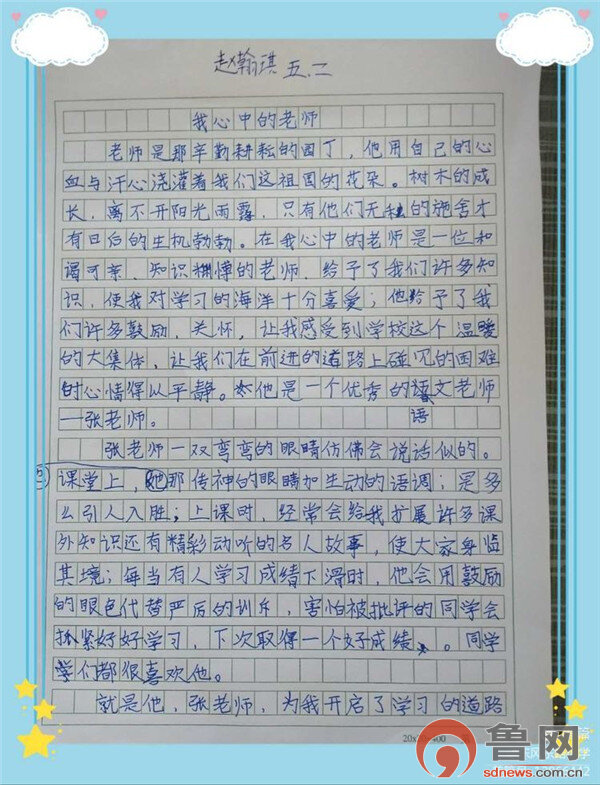 赵翰琪 五.二
我心中的老师
老师是那辛勤耕耘的园丁，他用自己的心
血与汗心浇灌着我们这祖国的花朵。树木的成
长，离不开阳光雨露，只有他们无私的施舍才
有日后的生机勃勃。在我心中的老师是一位和
谒可亲、知识渊博的老师，给予了我们许多知
识，使我对学习的海洋十分喜爱；他给予了我
们许多鼓励，关怀，让我感受到学校这个温暖
的大集体，让我们在前进的道路上碰见的困难
时心情得以平静。他是一个优秀的语文老师
—张老师。
语
张老师一双弯弯的眼睛仿佛会说话似的。
课堂上，他那传神的眼睛加生动的语调；是多
么引人入胜；上课时，经常会给我扩展许多课
外知识还有精彩动听的名人故事，使大家身临
其境；每当有人学习成绩下滑时，他会用鼓励
的眼色代替严厉的训斥，害怕被批评的同学会
抓紧好好学习，下次取得一个好成绩、。同学
学们都很喜欢他。
就是他，张老师，为我开启了学习的道路
鲁网
sdnews.com.cn